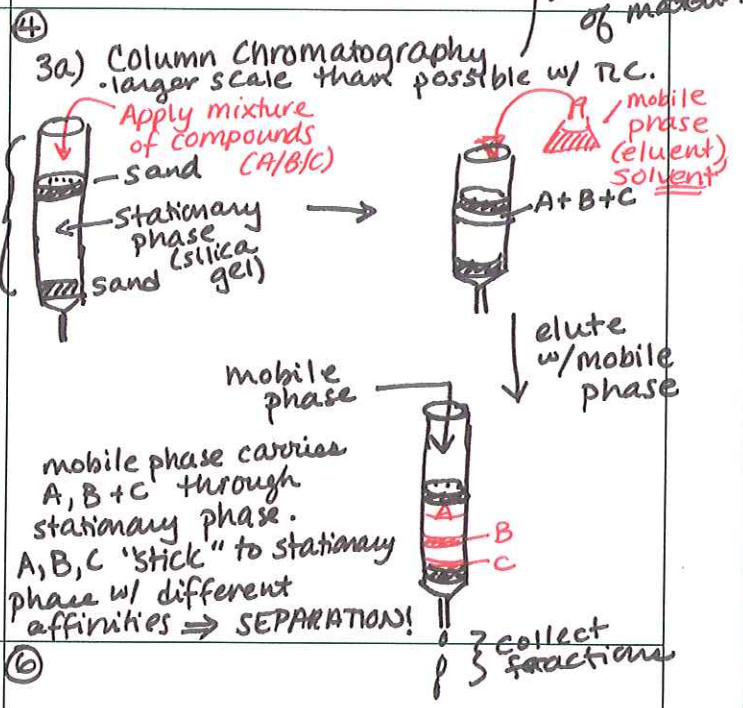 ④
of
3a) Column Chromatography
• larger scale than possible w/ TLC.
Apply mixture
of compounds
(A/B/C)
sand
stationary
phase
(silica
gel)
sand
mobile
phase
(eluent)
solvent
A+B+C
elute
w/mobile
phase
mobile
phase
mobile phase carries
A, B + C through
stationary phase.
A, B, C "stick" to stationary
phase w/ different
affinities ⇒ SEPARATION!
A
B
C
collect
fractions
⑥